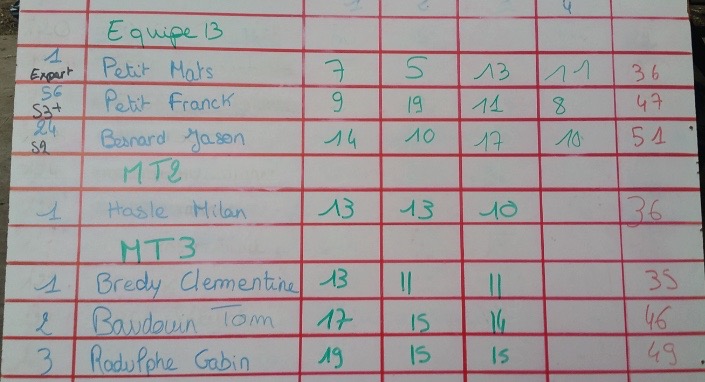 Equipe B
1 Expert Petit Mats 7 5 13 11 36
56 S3+ Petit Franck 9 19 11 8 47
24 S2 Besnard Jason 14 10 17 10 51
MT2
1 Hasle Milan 13 13 10 36
MT3
1 Bredy Clementine 13 11 11 35
2 Baudouin Tom 17 15 14 46
3 Radulphe Gabin 19 15 15 49